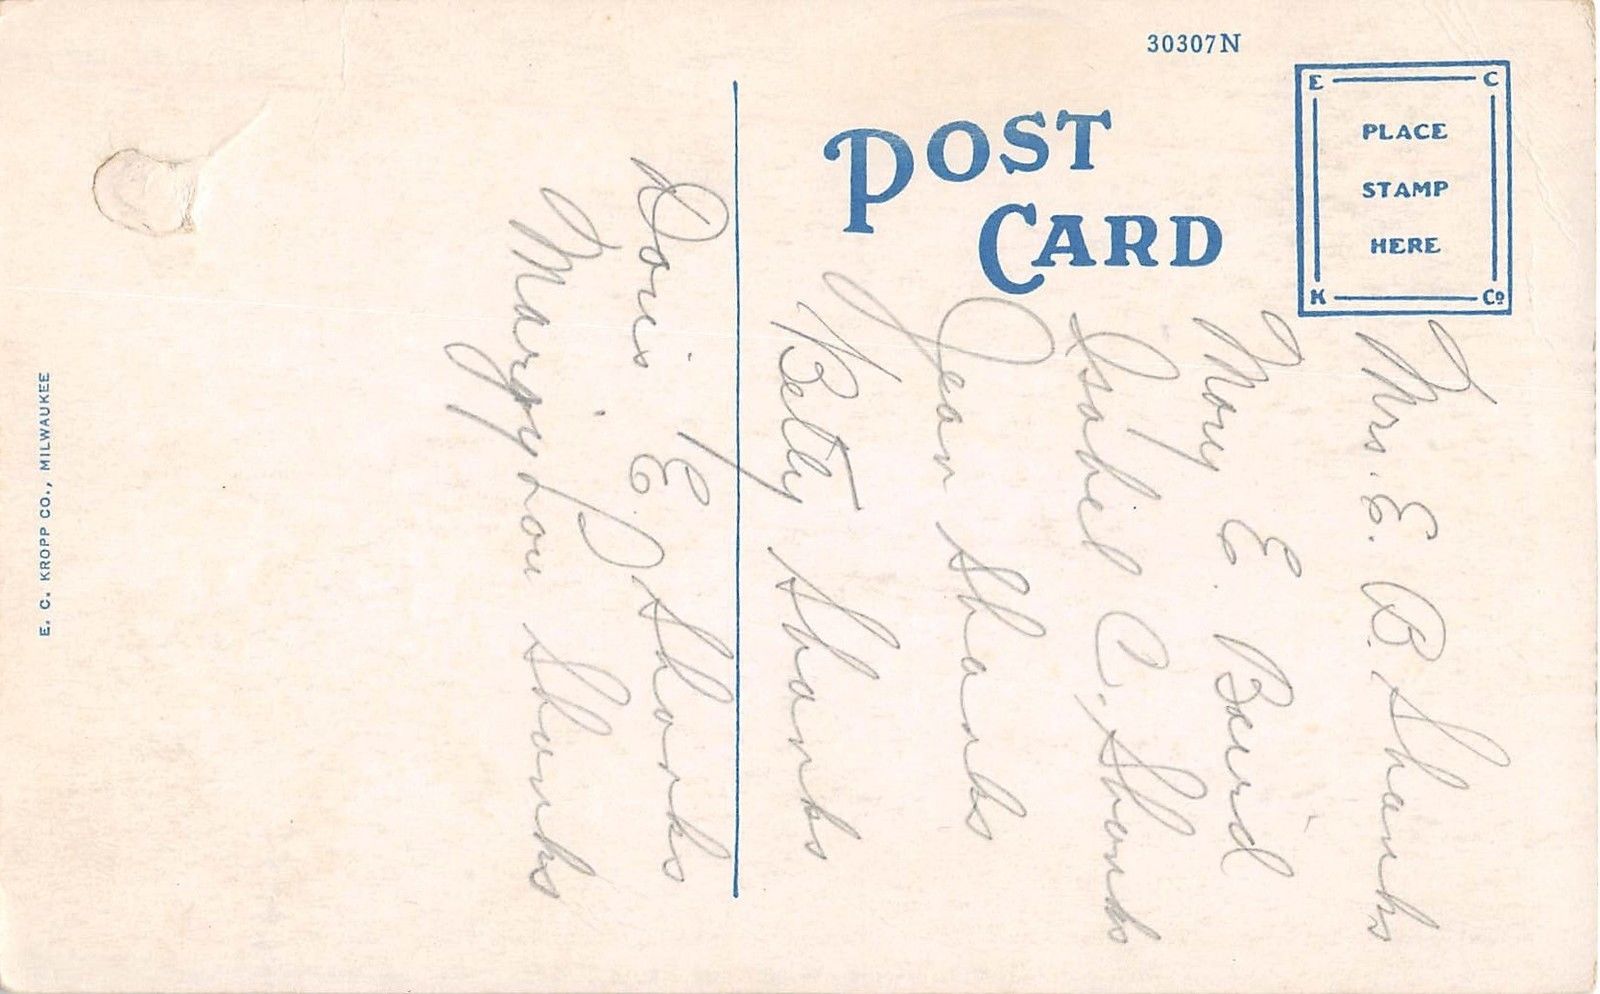 30307N
POST
CARD
E C
PLACE
STAMP
HERE
K Co
Mrs. E. B. Shanks
Mary E. Baird
Isabel C. Shanks
Jean Shanks
Betty Shanks
Doris E. Shanks
Mary Lou Shanks
E. C. KROPP CO., MILWAUKEE